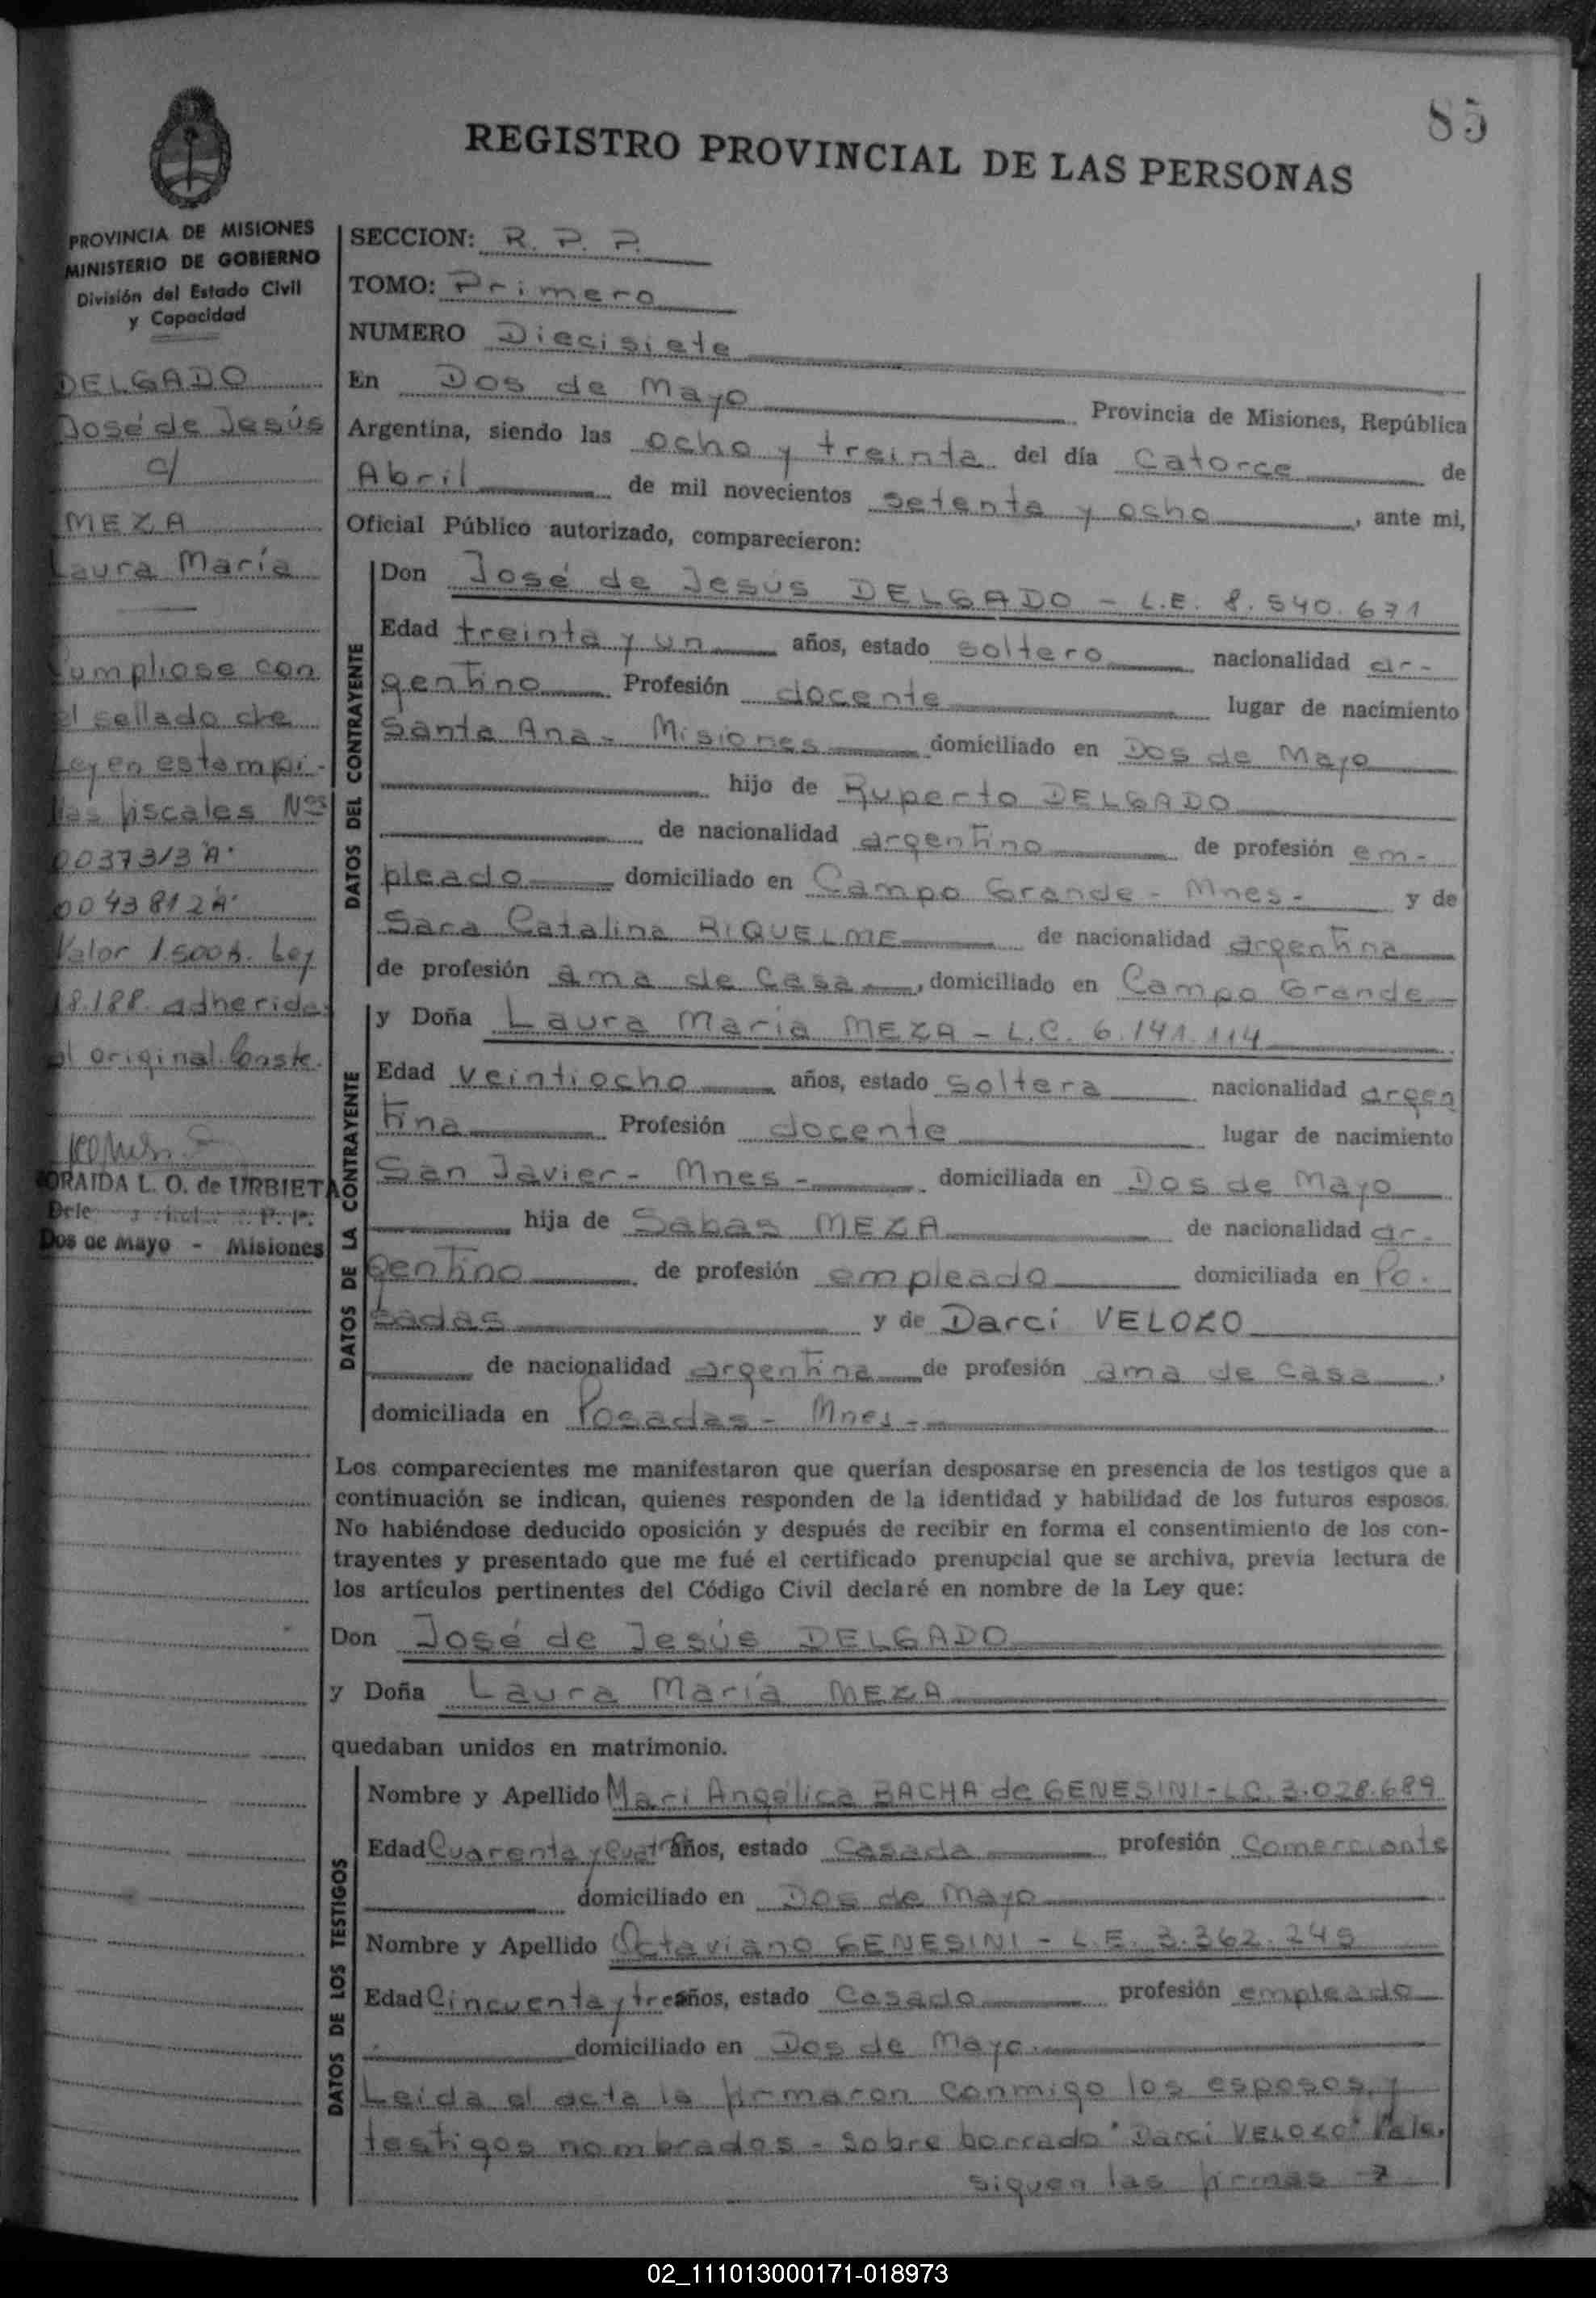 85
REGISTRO PROVINCIAL DE LAS PERSONAS
PROVINCIA DE MISIONES
MINISTERIO DE GOBIERNO
División del Estado Civil
y Capacidad
DELGADO
José de Jesús
c/
MEZA
Laura María
Cumpliose con
el sellado de
Ley en estampi-
llas fiscales Nos
00373/3 A"
0043812A"
Valor 1.500$. Ley
18.188. adherida
al original. Conste.
ORAIDA L. O. de URBIETA
Dos de Mayo - Misiones
SECCION: R. P. P.
TOMO: Primero
NUMERO Diecisiete
En Dos de Mayo Provincia de Misiones, República
Argentina, siendo las ocho y treinta del día Catorce de
Abril de mil novecientos setenta y ocho, ante mi,
Oficial Público autorizado, comparecieron:
DATOS DEL CONTRAYENTE
Don José de Jesús DELGADO - L.E. 8.540.671
Edad treinta y un años, estado soltero nacionalidad ar-
gentino Profesión docente lugar de nacimiento
Santa Ana - Misiones domiciliado en Dos de Mayo
hijo de Ruperto DELGADO
de nacionalidad argentino de profesión em-
pleado domiciliado en Campo Grande - Mnes - y de
Sara Catalina RIQUELME de nacionalidad argentina
de profesión ama de Casa, domiciliado en Campo Grande
DATOS DE LA CONTRAYENTE
y Doña Laura María MEZA - L.C. 6.141.114
Edad veintiocho años, estado soltera nacionalidad argen
tina Profesión docente lugar de nacimiento
San Javier - Mnes - domiciliada en Dos de Mayo
hija de Sabas MEZA de nacionalidad ar-
gentino de profesión empleado domiciliada en Po-
sadas y de Darci VELOZO
de nacionalidad argentina de profesión ama de casa,
domiciliada en Posadas - Mnes -
Los comparecientes me manifestaron que querían desposarse en presencia de los testigos que a
continuación se indican, quienes responden de la identidad y habilidad de los futuros esposos.
No habiéndose deducido oposición y después de recibir en forma el consentimiento de los con-
trayentes y presentado que me fué el certificado prenupcial que se archiva, previa lectura de
los artículos pertinentes del Código Civil declaré en nombre de la Ley que:
Don José de Jesús DELGADO
y Doña Laura María MEZA
quedaban unidos en matrimonio.
DATOS DE LOS TESTIGOS
Nombre y Apellido Mari Angélica BACHA de GENESINI - L.C. 3.028.689
Edad Cuarenta y Cuatro años, estado Casada profesión Comerciante
domiciliado en Dos de Mayo
Nombre y Apellido Octaviano GENESINI - L.E. 3.362.245
Edad Cincuenta y tres años, estado Casado profesión empleado
domiciliado en Dos de Mayo
Leída el acta la firmaron conmigo los esposos y
testigos nombrados - Sobre borrado "Darci VELOZO" Vale.
siguen las firmas →
02_111013000171-018973